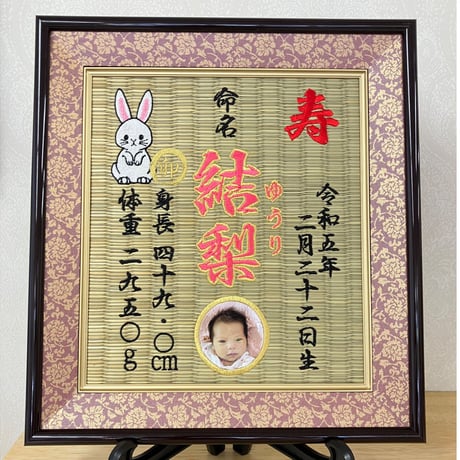 寿
令和五年
二月二十二日生
命名
結梨
ゆうり
身長 四十九・〇cm
体重 二九五〇g